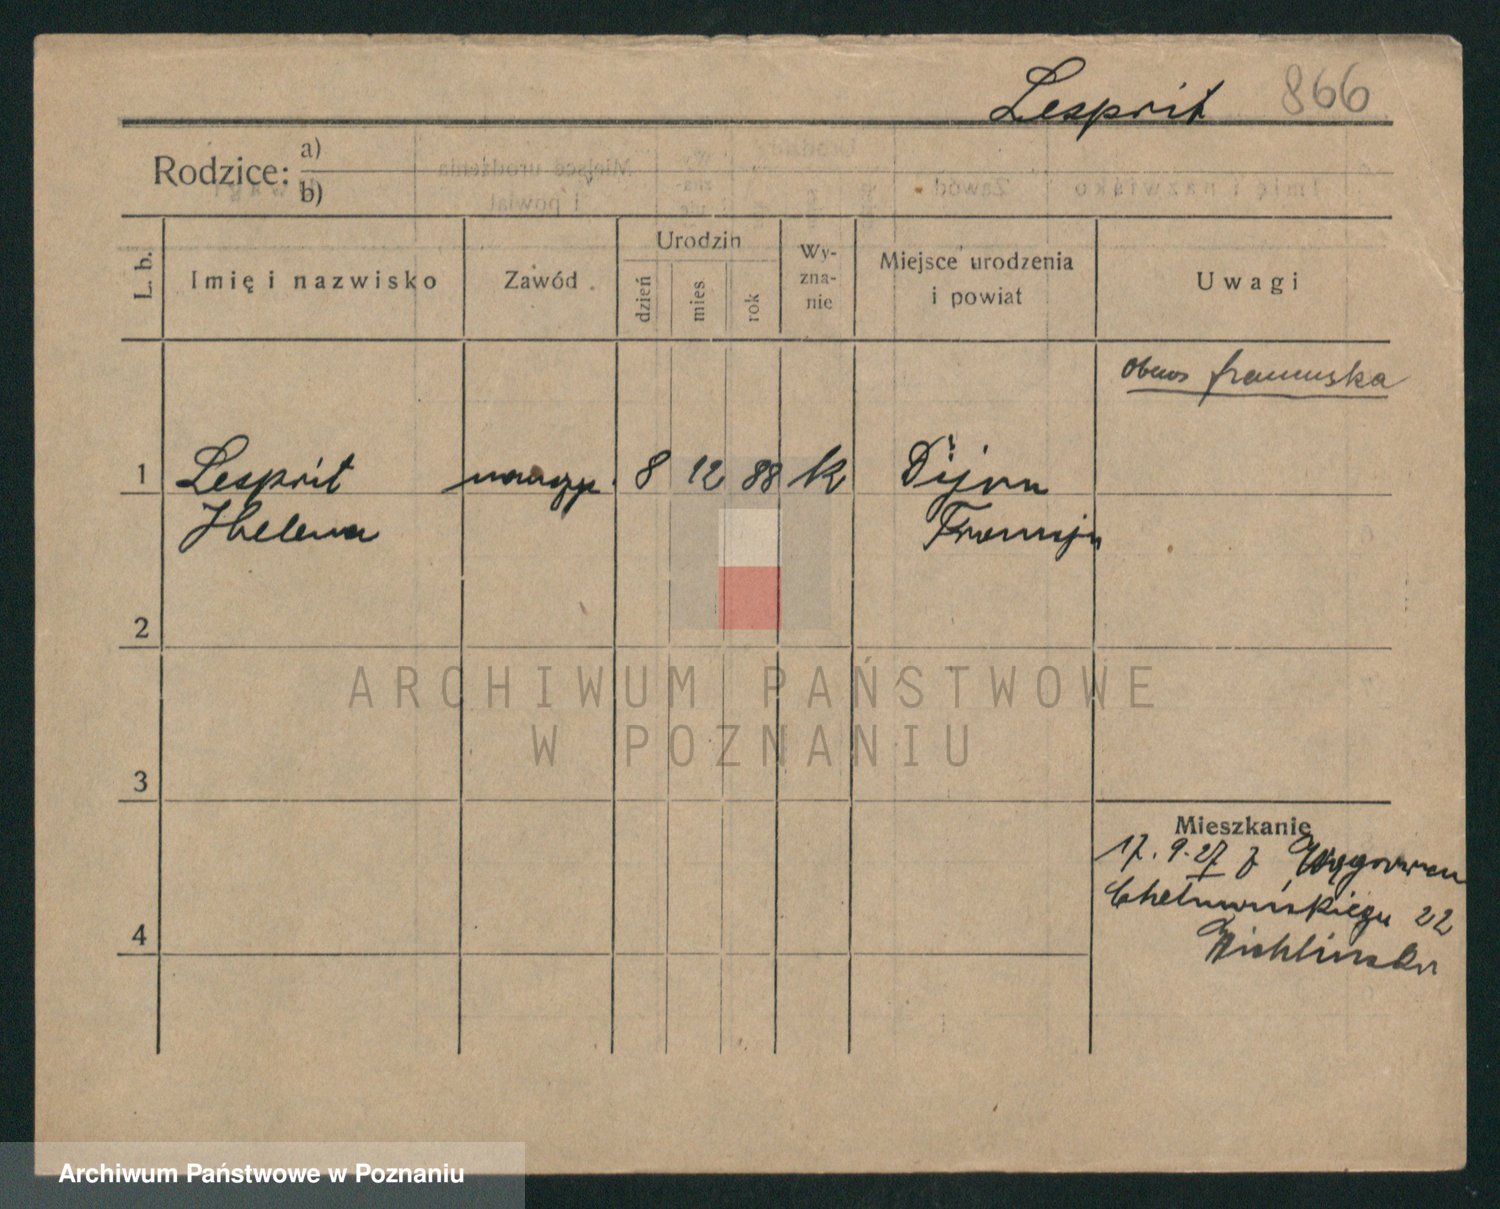 Lesprit 866
Rodzice: a)
b)
L. b.
Imię i nazwisko
Zawód
Urodzin
dzień
mies
rok
Wy-
zna-
nie
Miejsce urodzenia
i powiat
Uwagi
francuska
1 Lesprit 8 12 88 k Dijon
Helena Francja
2
3
4
ARCHIWUM PAŃSTWOWE
W POZNANIU
Mieszkanie
17. 9. 27 z
22
Archiwum Państwowe w Poznaniu